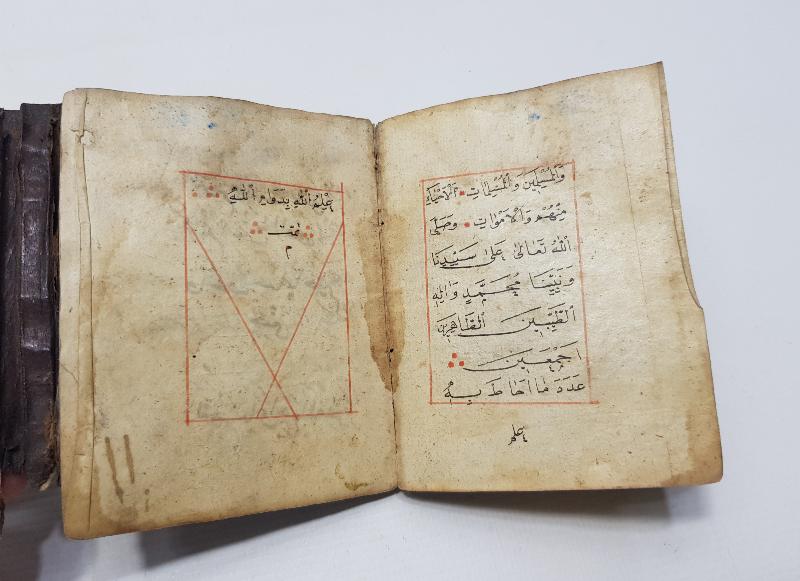 وَالْمُسْلِمِينَ وَالْمُسْلِمَاتِ اَلْاَحْيَاءِ
مِنْهُمْ وَالْاَمْوَاتِ وَصَلَّى
اللّٰهُ تَعَالٰى عَلٰى سَيِّدِنَا
وَنَبِيِّنَا مُحَمَّدٍ وَاٰلِهِ
الطَّيِّبِينَ الطَّاهِرِينَ
اَجْمَعِينَ
عَدَدَ مَا اَحَاطَ بِهِ
علم
عِلْمُ اللّٰهِ بِدَوَامِ اللّٰهِ
تمت
م